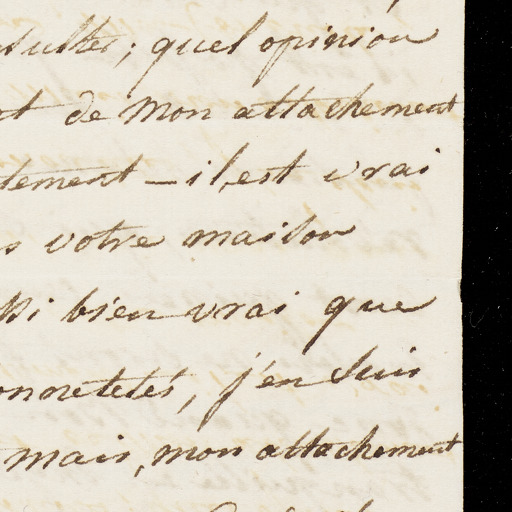 sultes; quel opinion
nt de mon attachement
tement _ il est vrai
s votre maison
ssi bien vrai que
onnetetés, j'en suis
mais, mon attachement